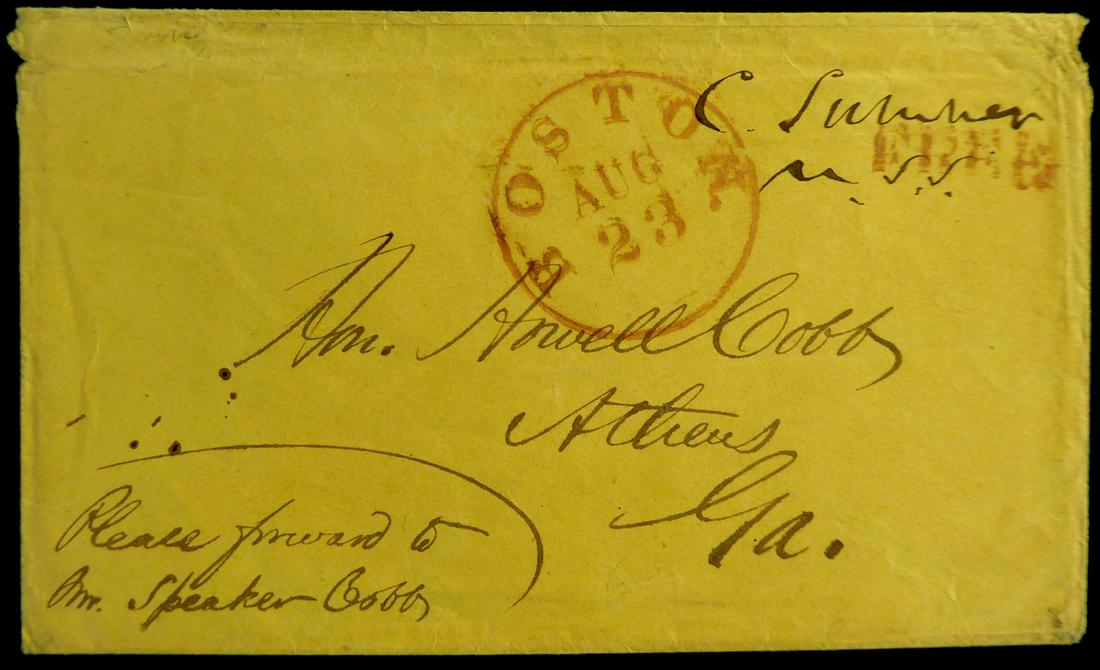 C. Sumner
U.S.S.
FREE
BOSTON
AUG
23
Hon. Howell Cobb
Athens
Ga.
Please forward to
Mr. Speaker Cobb